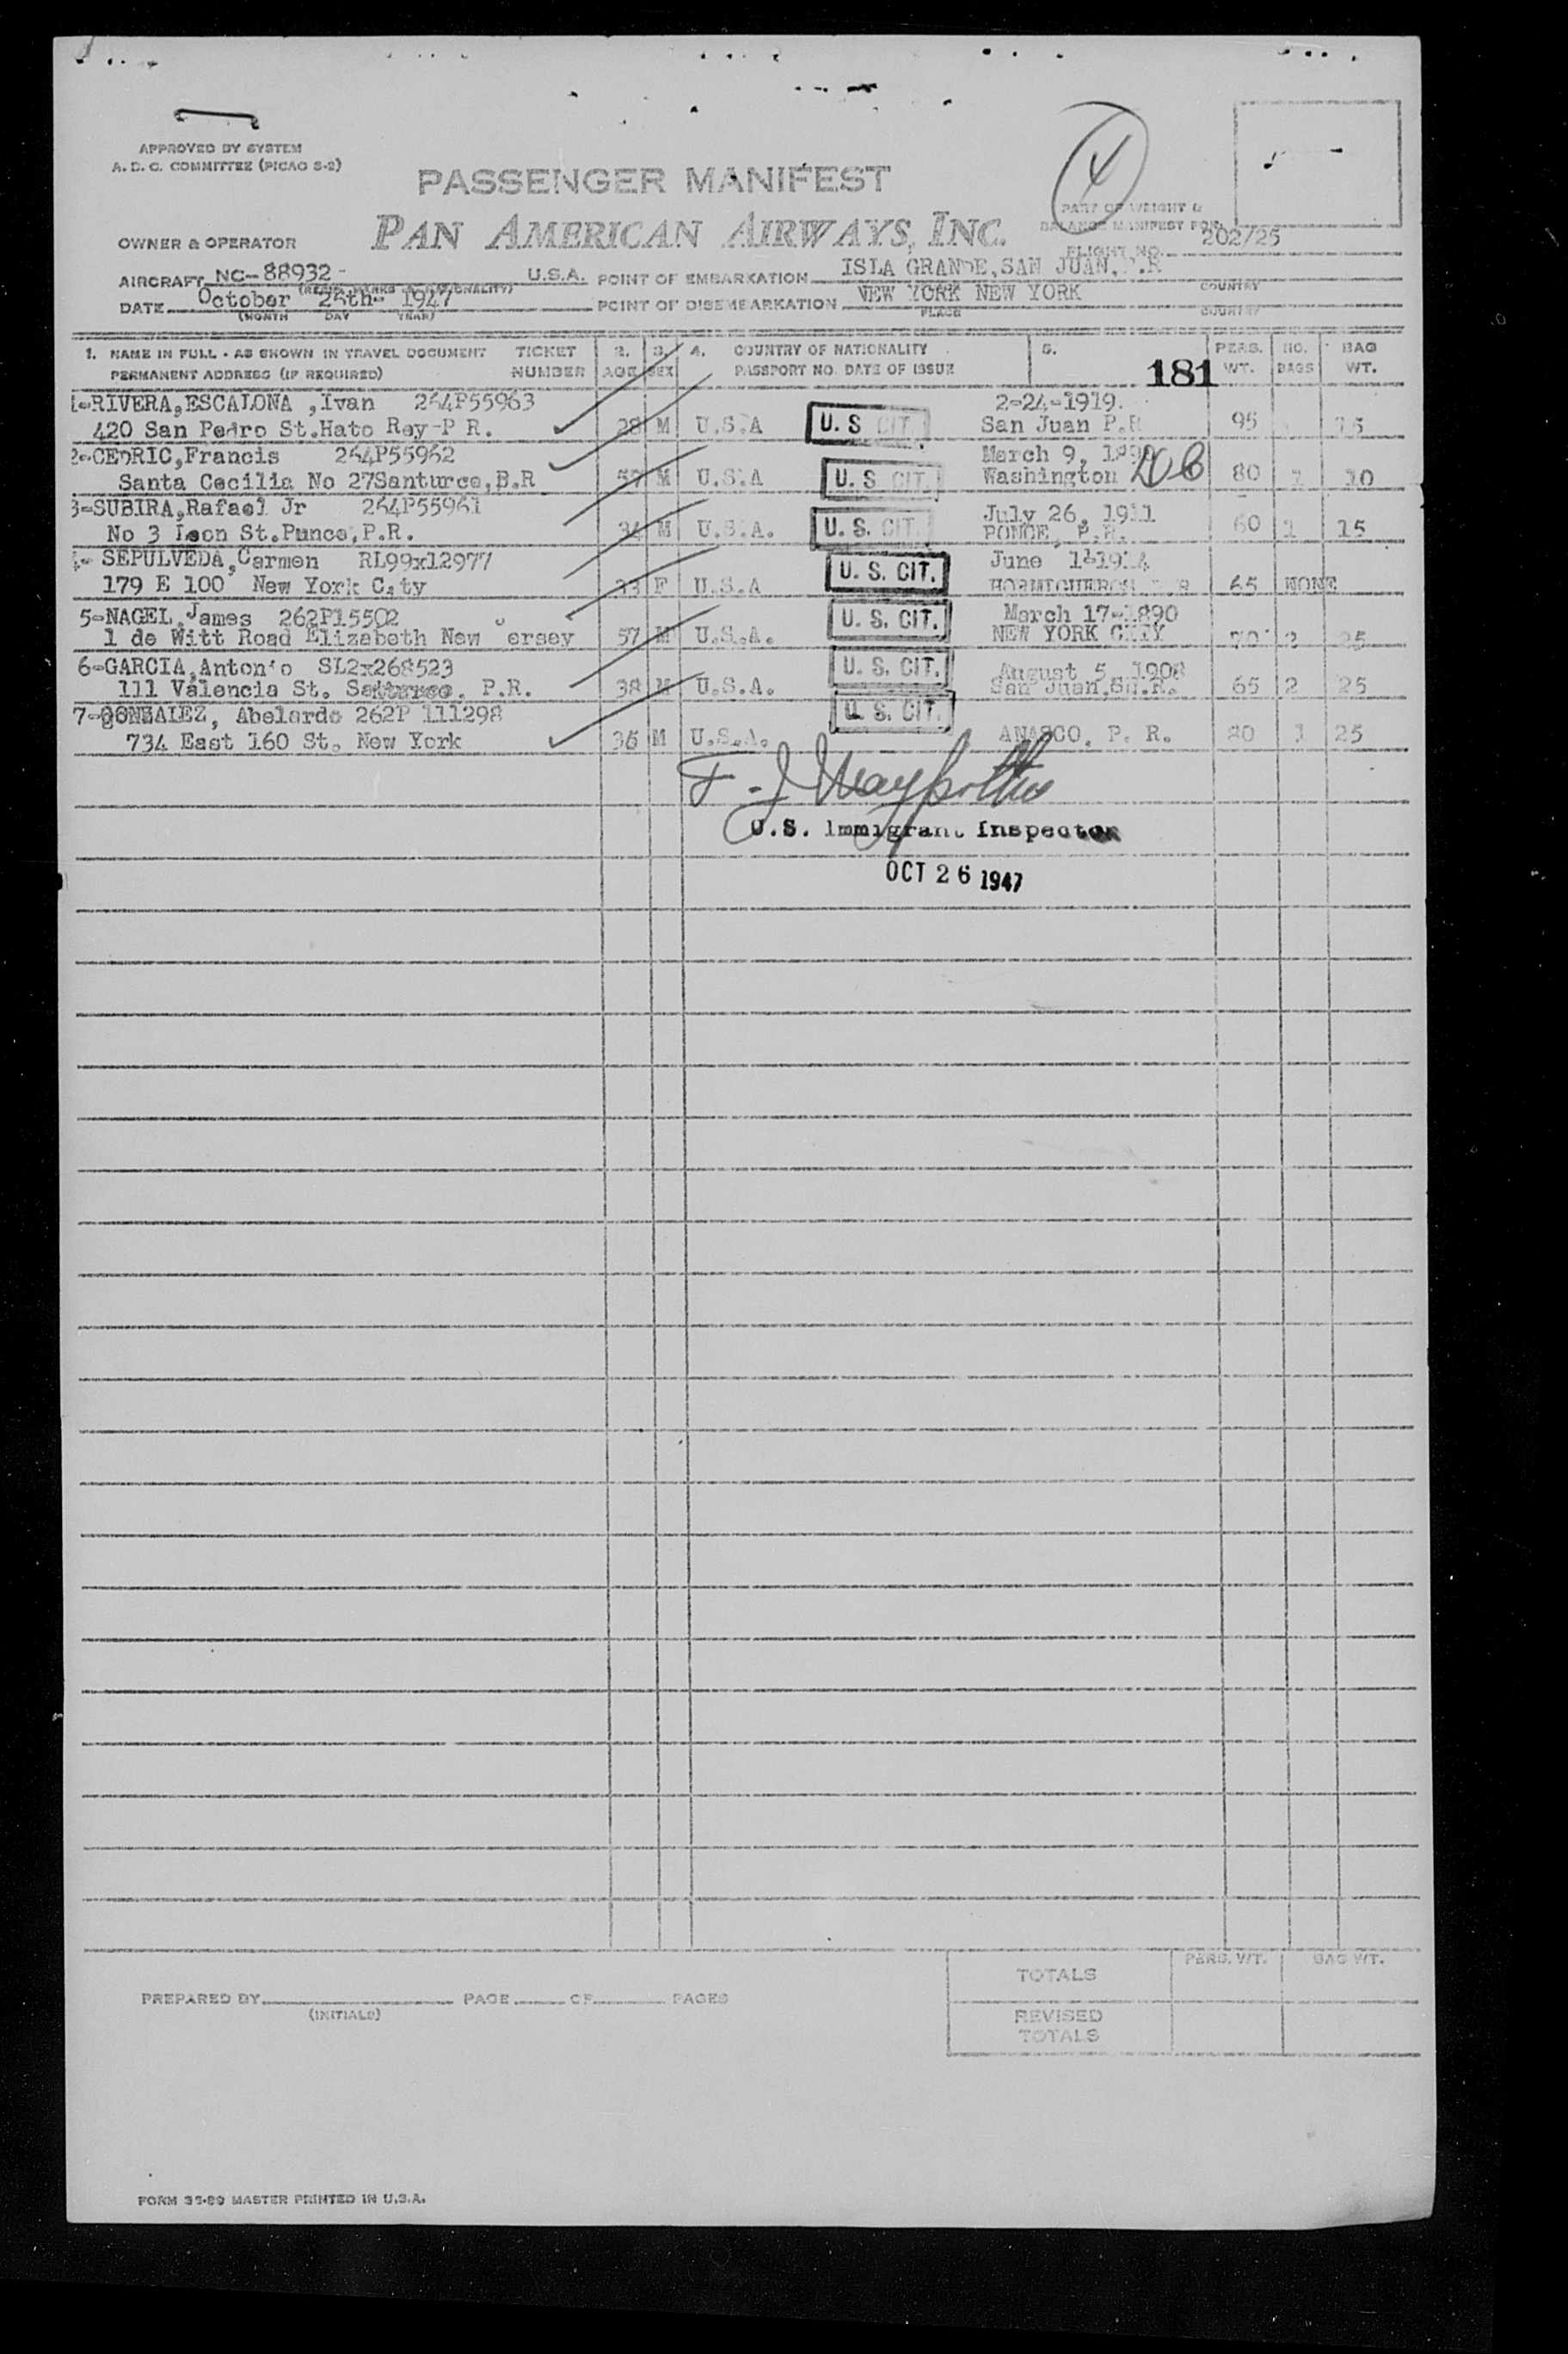 APPROVED BY SYSTEM
A. D. C. COMMITTEE (PICAO S-2)
4
PASSENGER MANIFEST
PART OF WEIGHT &
BALANCE MANIFEST FOR
PAN AMERICAN AIRWAYS, INC.
OWNER & OPERATOR
FLIGHT NO. 202/25
AIRCRAFT NC-88932- U.S.A. POINT OF EMBARKATION ISLA GRANDE, SAN JUAN, P.R
(REGIS. MARKS & NATIONALITY) COUNTRY
DATE October 25th- 1947 POINT OF DISEMBARKATION NEW YORK NEW YORK
(MONTH DAY YEAR) PLACE COUNTRY
1. NAME IN FULL - AS SHOWN IN TRAVEL DOCUMENT TICKET 2. 3. 4. COUNTRY OF NATIONALITY 5. PERS. NO. BAG
PERMANENT ADDRESS (IF REQUIRED) NUMBER AGE SEX PASSPORT NO. DATE OF ISSUE 181 WT. BAGS WT.
1-RIVERA,ESCALONA ,Ivan 264P55963 2-24-1919.
420 San Pedro St.Hato Rey-P R. 28 M U.S.A U. S CIT. San Juan P.R 95
2-CEDRIC,Francis 264P55962 March 9,
Santa Cecilia No 27Santurce,B.R 57 M U.S.A U. S CIT. Washington 80 1 10
3-SUBIRA,Rafael Jr 264P55961 July 26, 1911
No 3 Leon St.Punce,P.R. M U.S.A. U. S. CIT. PONCE, P.R. 60 1 15
SEPULVEDA,Carmen RL99x12977 June
179 E 100 New York City 33 F U.S.A U. S. CIT. HORMIGUEROS 65 NONE
5-NAGEL,James 262P15502 March 17-1890
1 de Witt Road Elizabeth New ersey 57 M U.S.A. U. S. CIT. NEW YORK CITY 70 2 25
6-GARCIA,Antonio SL2x268523 August 5 1908
111 Valencia St. Santurce. P.R. 38 M U.S.A. U. S. CIT. San Juan, 65 2 25
7-GONZALEZ, Abelardo 262P 111298
734 East 160 St. New York 36 M U.S.A. U. S. CIT. ANASCO, P. R. 80 1 25
U.S. Immigrant Inspector
OCT 26 1947
PERS. WT. BAG WT.
TOTALS
PREPARED BY PAGE OF PAGES
(INITIALS)
REVISED
TOTALS
FORM 35-80 MASTER PRINTED IN U.S.A.